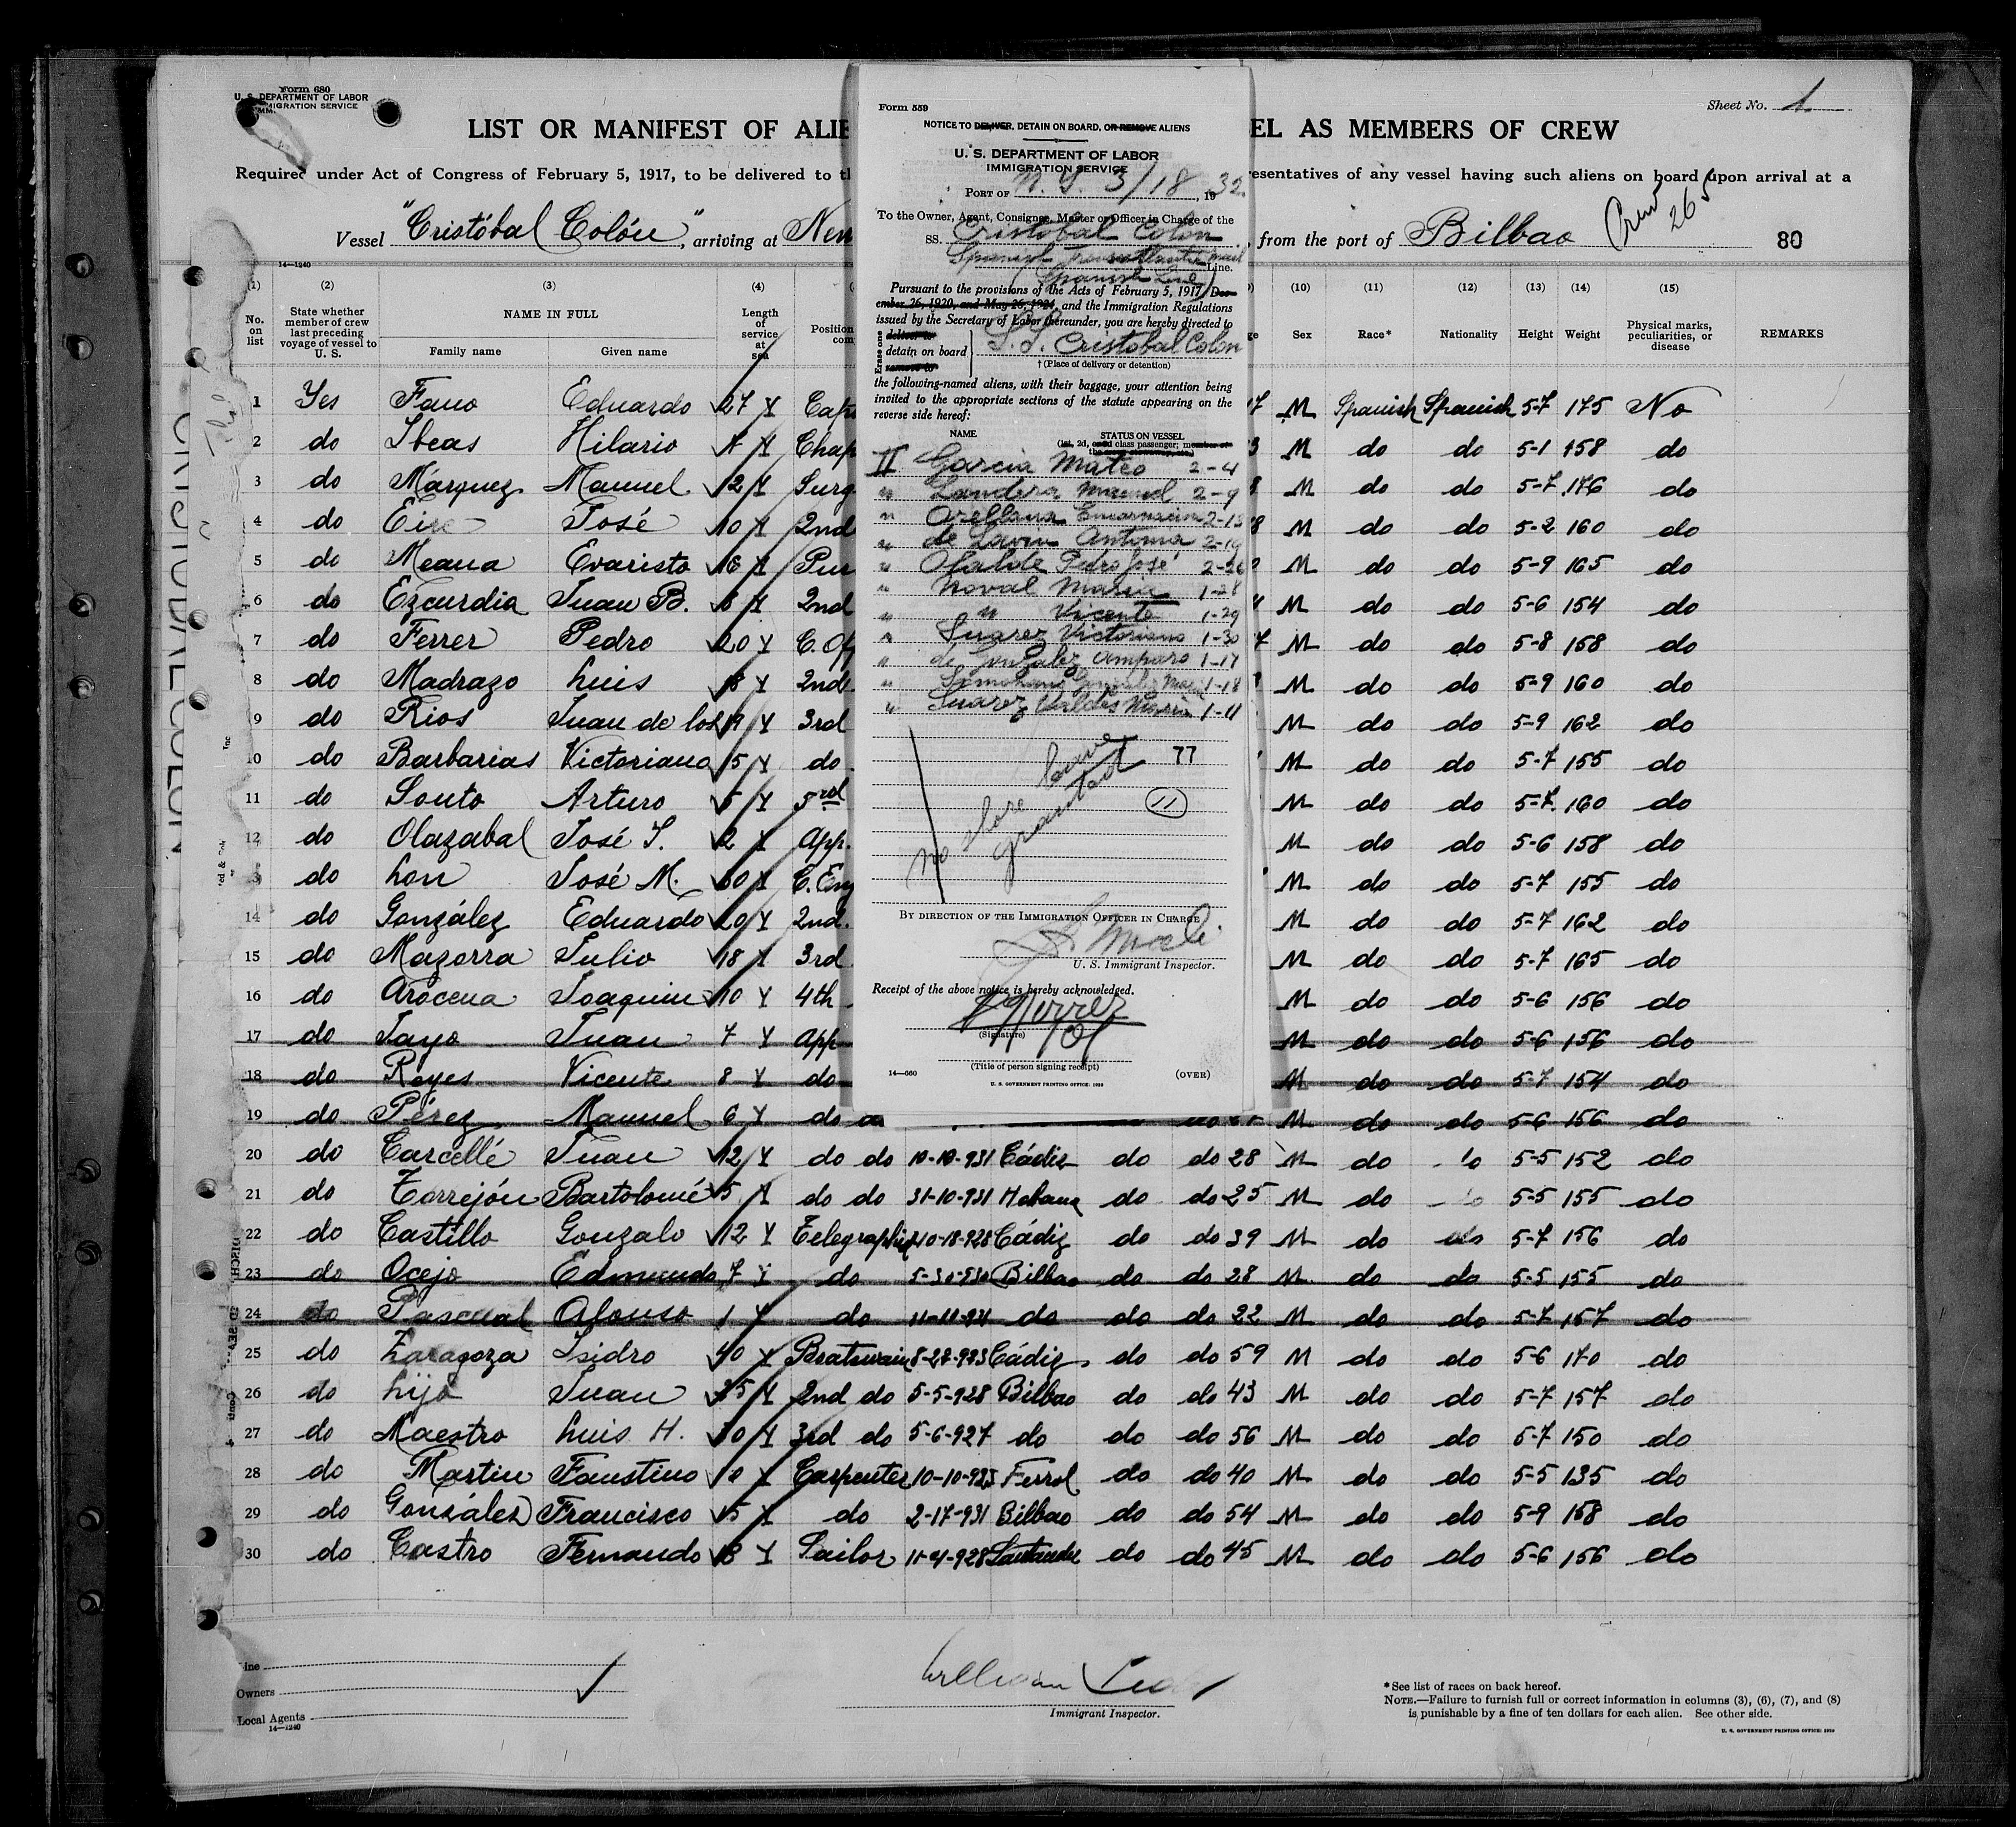 Form 680
U. S. DEPARTMENT OF LABOR
IMMIGRATION SERVICE
Sheet No. 1
LIST OR MANIFEST OF ALIE
EL AS MEMBERS OF CREW
Required under Act of Congress of February 5, 1917, to be delivered to t
resentatives of any vessel having such aliens on board upon arrival at a
Vessel "Cristóbal Colón", arriving at New
, from the port of Bilbao
Crew 265
80
14—1240
(1) (2) (3) (4)
(10) (11) (12) (13) (14) (15)
No. on list
State whether member of crew last preceding voyage of vessel to U. S.
NAME IN FULL
Family name
Given name
Length of service at sea
Position
com
Sex
Race*
Nationality
Height
Weight
Physical marks, peculiarities, or disease
REMARKS
1 Yes Fano Eduardo 27 Y Cap M Spanish Spanish 5-7 175 No
2 do Ibeas Hilario Y Chap M do do 5-1 158 do
3 do Márquez Manuel 12 Y Surg M do do 5-7 176 do
4 do José 10 Y 2nd M do do 5-2 160 do
5 do Meana Evaristo 16 Y Pur M do do 5-9 165 do
6 do Ezcurdia Juan B. 6 Y 2nd M do do 5-6 154 do
7 do Ferrer Pedro 20 Y C. Of M do do 5-8 158 do
8 do Madrazo Luis 18 Y 2nd M do do 5-9 160 do
9 do Rios Juan de los 19 Y 3rd M do do 5-9 162 do
10 do Barbarias Victoriano 15 Y do M do do 5-7 155 do
11 do Souto Arturo 5 Y 5rd M do do 5-7 160 do
12 do Olazabal José S. 2 Y App. M do do 5-6 158 do
13 do Lon José M. 30 Y C. Eng M do do 5-7 155 do
14 do González Eduardo 20 Y 2nd. M do do 5-7 162 do
15 do Mazorra Julio 18 Y 3rd M do do 5-7 165 do
16 do Arocena Joaquin 10 Y 4th M do do 5-6 156 do
17 do Jayo Juan 7 Y App M do do 5-6 156 do
18 do Reyes Vicente 8 Y do M do do 5-7 154 do
19 do Pérez Manuel 6 Y do M do do 5-6 156 do
20 do Carcellé Juan 12 Y do do 10-10-931 Cádiz do do 28 M do do 5-5 152 do
21 do Torrejón Bartolomé 5 Y do do 31-10-931 Habana do do 25 M do do 5-5 155 do
22 do Castillo Gonzalo 12 Y Telegraphist 10-18-928 Cádiz do do 39 M do do 5-7 156 do
23 do Ocejo Edmundo 7 Y do 5-30-930 Bilbao do do 28 M do do 5-5 155 do
24 do Pascual Alonso 1 Y do 11-11-931 do do do 22 M do do 5-7 157 do
25 do Zaragoza Isidro 40 Y Boatswain 8-27-923 Cádiz do do 59 M do do 5-6 170 do
26 do Lijó Juan 25 Y 2nd do 5-5-928 Bilbao do do 43 M do do 5-7 157 do
27 do Maestro Luis H. 30 Y 3rd do 5-6-927 do do do 56 M do do 5-7 150 do
28 do Martin Faustino 10 Y Carpenter 10-10-923 Ferrol do do 40 M do do 5-5 135 do
29 do González Francisco 15 Y do 2-17-931 Bilbao do do 54 M do do 5-9 158 do
30 do Castro Fernando 18 Y Sailor 11-4-928 Santander do do 45 M do do 5-6 156 do
Line
Owners
Local Agents
14—1240
William
Immigrant Inspector.
*See list of races on back hereof.
NOTE.—Failure to furnish full or correct information in columns (3), (6), (7), and (8)
is punishable by a fine of ten dollars for each alien. See other side.
U. S. GOVERNMENT PRINTING OFFICE: 1929
Form 559
NOTICE TO DELIVER, DETAIN ON BOARD, OR REMOVE ALIENS
U. S. DEPARTMENT OF LABOR
IMMIGRATION SERVICE
PORT OF N.Y. 3/18, 1932
To the Owner, Agent, Consignee, Master or Officer in Charge of the
SS. Cristobal Colon
Spanish Transatlantic Mail Line.
(Spanish Line)
Pursuant to the provisions of the Acts of February 5, 1917, Dec-
ember 26, 1920, and May 26, 1924, and the Immigration Regulations
issued by the Secretary of Labor thereunder, you are hereby directed to
Erase one
deliver to
detain on board
remove to
S.S. Cristobal Colon
† (Place of delivery or detention)
the following-named aliens, with their baggage, your attention being
invited to the appropriate sections of the statute appearing on the
reverse side hereof:
NAME
STATUS ON VESSEL
(1st, 2d, or 3d class passenger; member of
II Garcia Mateo 2-4
" Landera Manuel 2-9
" Arellana Encarnacion 2-13
" de Lavin Antonia 2-19
" Olalde Pedro José 2-26
" Noval Maria 1-28
" " Vicente 1-29
" Suarez Victoriano 1-30
" de Gonzalez Amparo 1-17
" 1-18
" Suarez Valdes Maria 1-11
77
11
no shore leave granted
BY DIRECTION OF THE IMMIGRATION OFFICER IN CHARGE
U. S. Immigrant Inspector.
Receipt of the above notice is hereby acknowledged.
(Signature)
(Title of person signing receipt)
14—660
U. S. GOVERNMENT PRINTING OFFICE: 1929
(OVER)